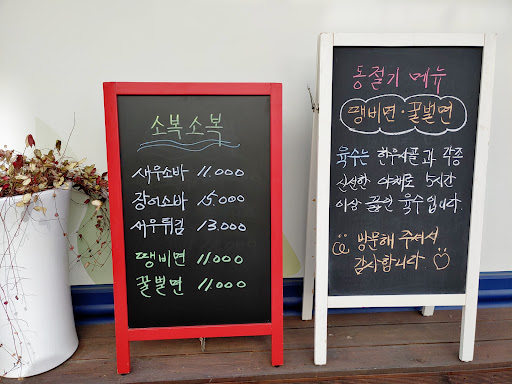 소복소복
새우소바 11.000
장어소바 15.000
새우튀김 13.000
땡비면 11.000
꿀벌면 11.000
동절기 메뉴
땡비면·꿀벌면
육수는 한우사골과 각종
신선한 야채로 5시간
이상 끓인 육수입니다.
방문해 주셔서
감사합니다